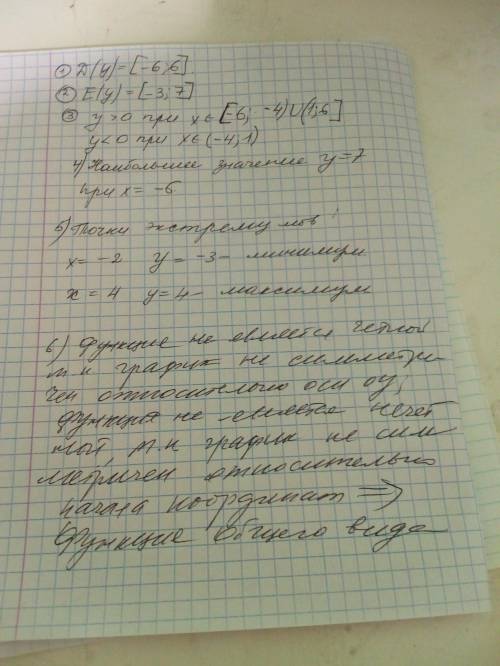 1) D(y) = [-6; 6]
2) E(y) = [-3; 7]
3) y > 0 при x ∈ [-6; -4) U (1; 6]
y < 0 при x ∈ (-4; 1)
4) Наибольшее значение y = 7
при x = -6
5) Точки экстремумов:
x = -2 y = -3 - минимум
x = 4 y = 4 - максимум
6) Функция не является четной
т.к график не симметри
чен относительно оси oy;
Функция не является нечет
ной, т.к график не сим
метричен относительно
начала координат =>
Функция общего вида